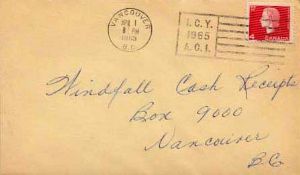 VANCOUVER
APR 1
8 PM
1965
B.C.
I.C.Y.
1965
A.C.I.
CANADA
Windfall Cash Receipts
Box 9000
Vancouver
B.C.